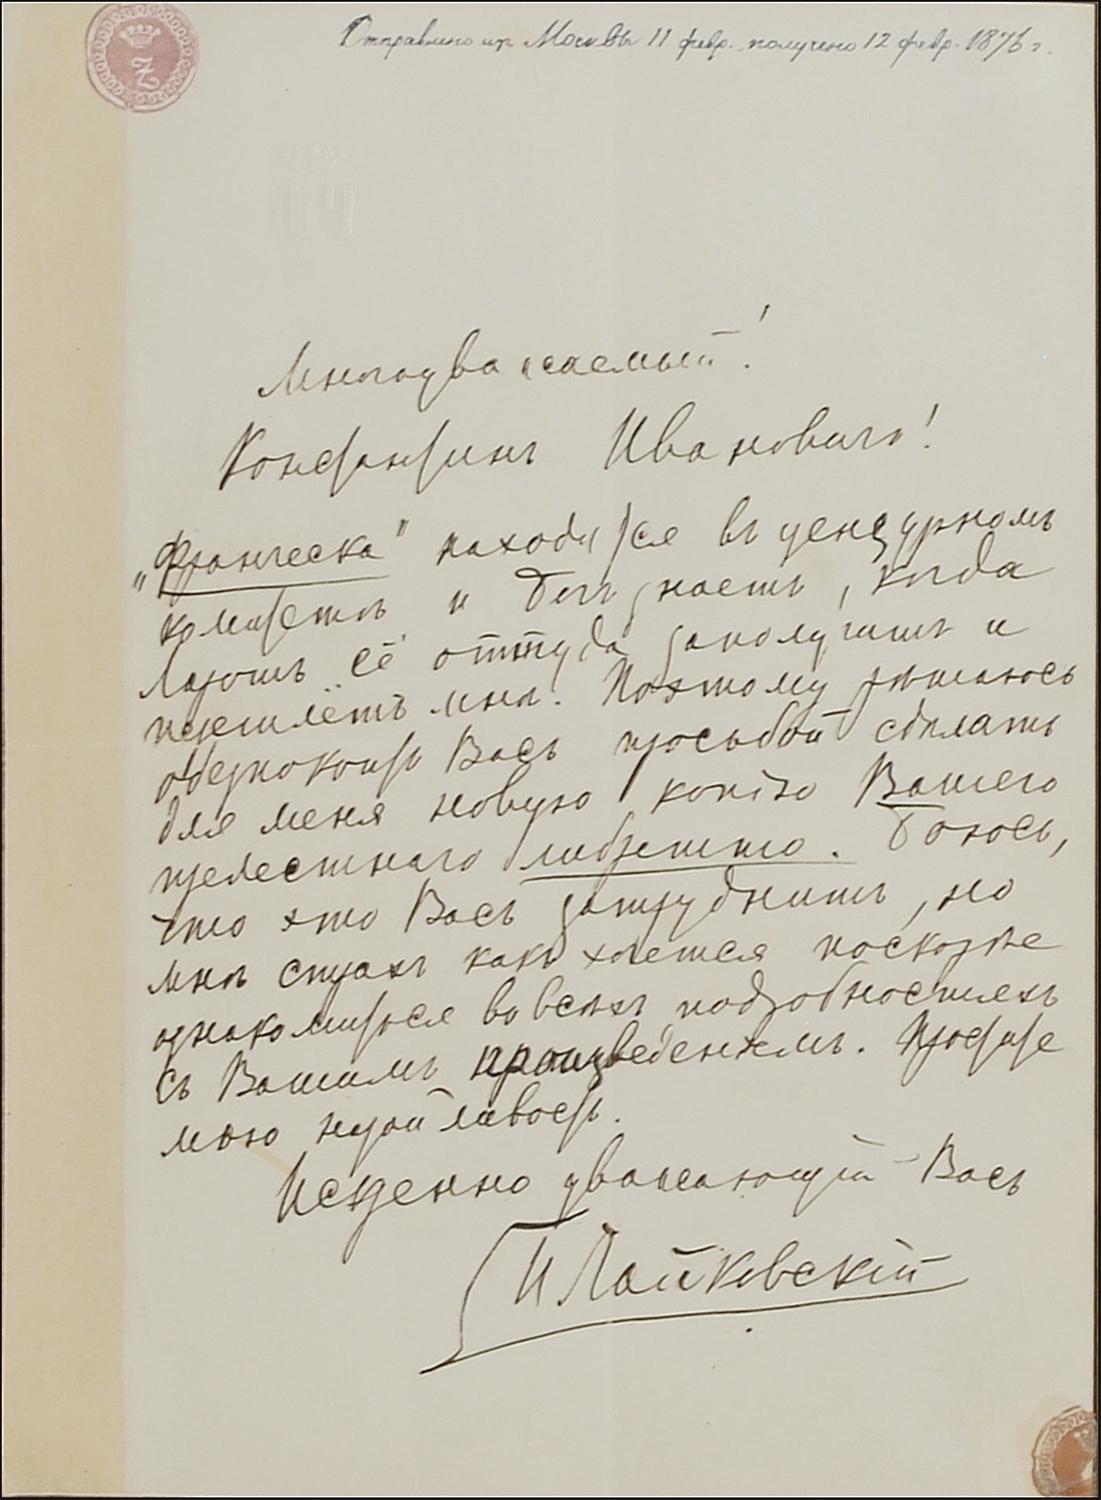 Z
Отправлено из Москвы 11 февр. получено 12 февр. 1876 г.
Многоуважаемый!
Константинъ Ивановичъ!
„Франческа" находится въ цензурномъ
комитетѣ и Богъ знаетъ, когда
Ларошъ её оттуда заполучитъ и
пришлётъ мнѣ. Поэтому рѣшаюсь
обезпокоить Васъ просьбой сдѣлать
для меня новую копію Вашего
прелестнаго либретто. Боюсь,
что это Васъ затруднитъ, но
мнѣ страхъ какъ хочется поскорѣе
ознакомиться во всѣхъ подробностяхъ
съ Вашимъ произведеніемъ. Простите
мою назойливость.
Искренно уважающій Васъ
П Чайковскій